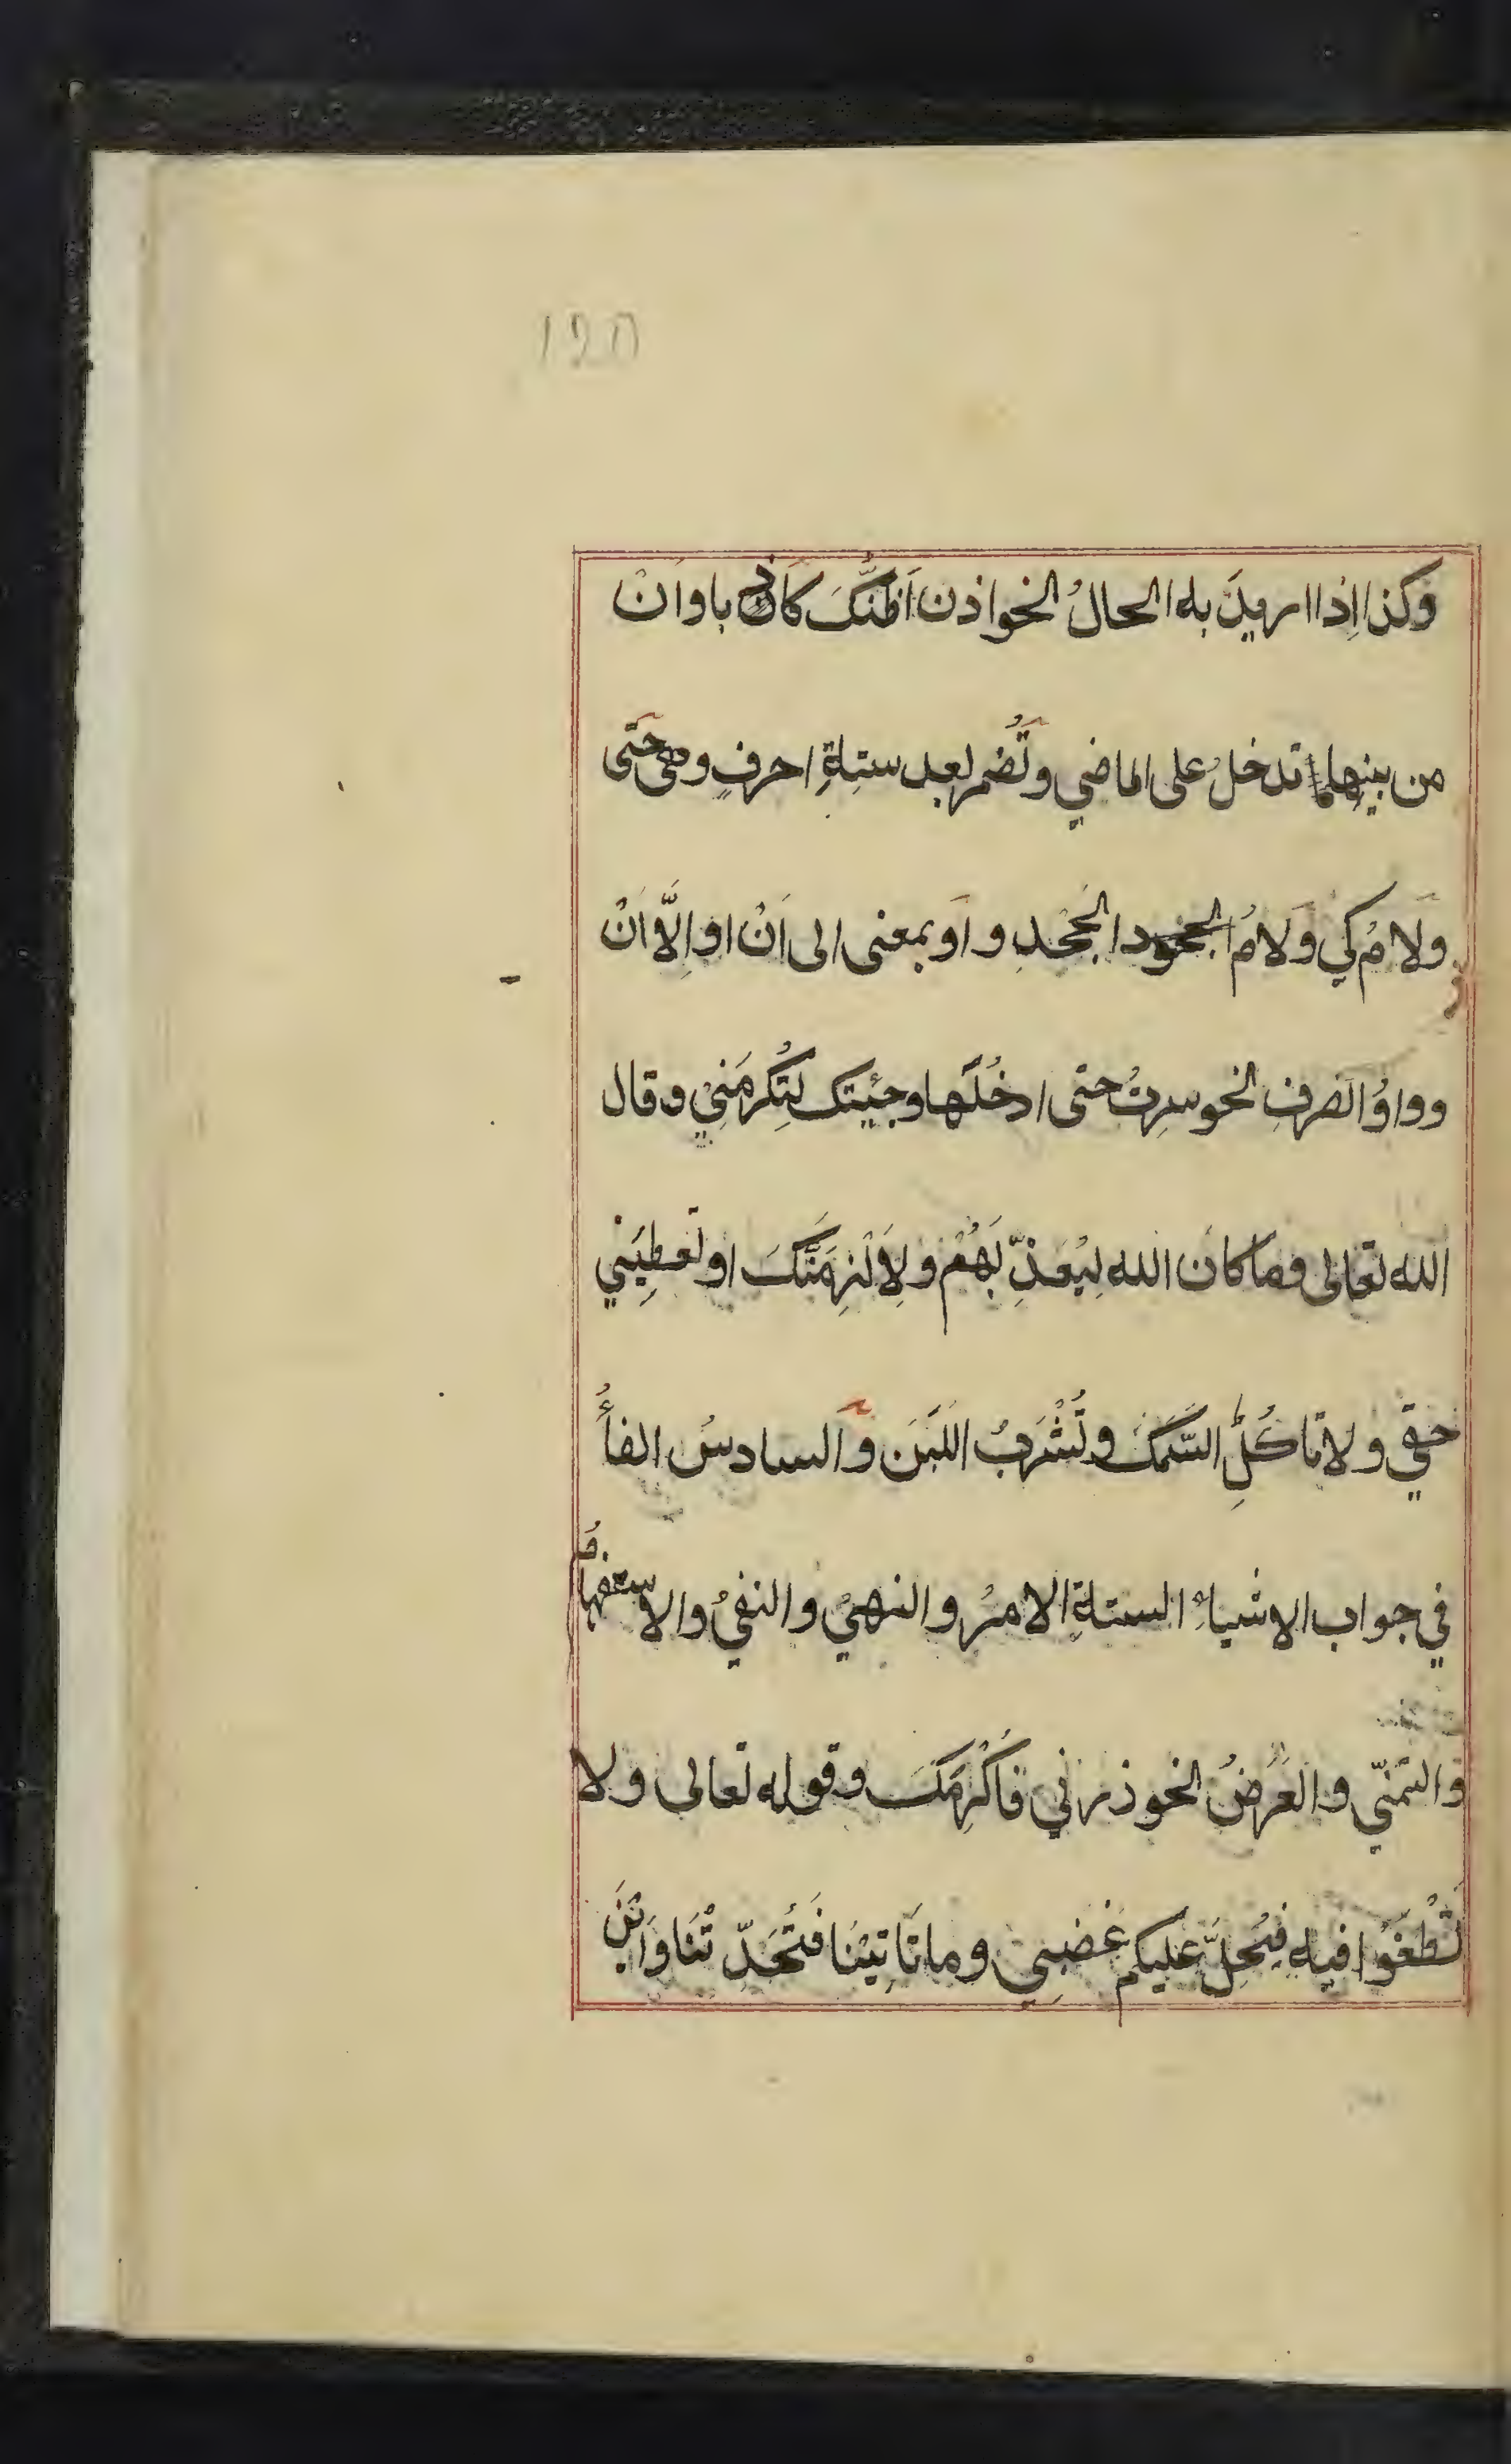 120
وكذا اِذا اريدَ به الحالُ نحو اذن اَظنُّكَ كاذبا واَنْ
من بينها تدخلُ على الماضي وتُضمر بعد ستةِ احرفٍ وهي حتَى
ولامُ كي وَلامُ الجحدِ واَو بمعنى الى اَنْ او اِلَّا اَنْ
وواوُ الصرفِ نحو سِرتُ حتى ادخُلَها وجئيتك لِتُكرمَنِي وقال
الله تعالى وما كانَ الله لِيُعَذِّبَهُمْ ولَاَلْزِمَنَّكَ او تعطِيَني
حقي ولا تاكُلِ السَّمَكَ وتَشْرَبُ اللَبَنَ والسادسُ الفأُ
في جواب الاشياءِ الستةِ الامرُ والنهيُ والنفيُ والاستفهامُ
والتمنّي والعَرْضُ نحو ذرني فَاُكْرِمَكَ وقوله تعالى ولا
تَطْغَوْا فيهِ فيَحِلَّ عليكم غَضبِي وما تَاتِيْنَا فَتُحَدّثْنَا وَاَيْنَ